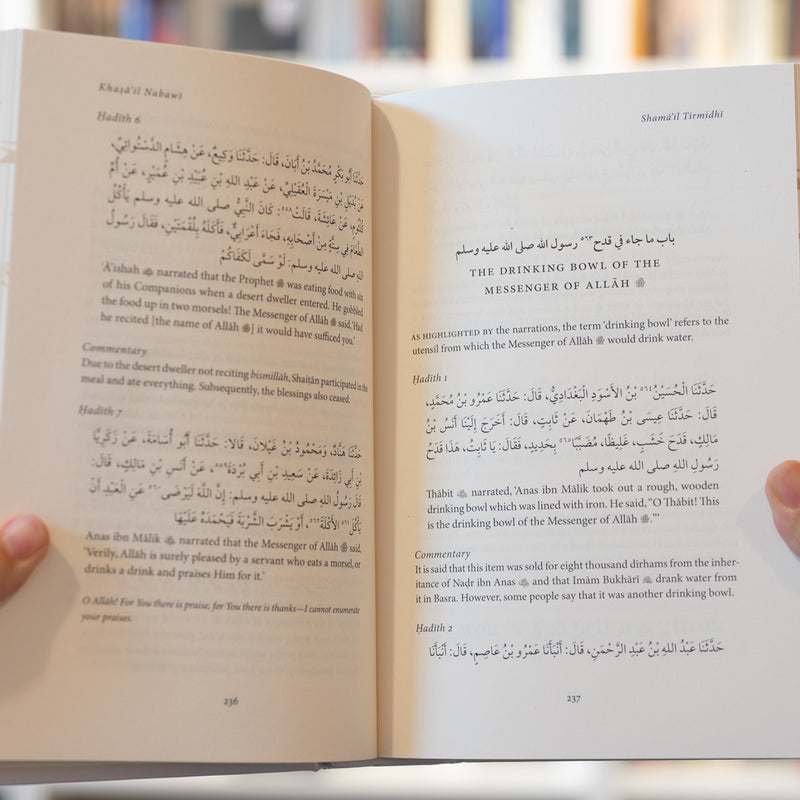 Khaṣā'il Nabawī
Ḥadīth 6
حَدَّثَنَا أَبُو بَكْرٍ مُحَمَّدُ بْنُ أَبَانَ، قَالَ: حَدَّثَنَا وَكِيعٌ، عَنْ هِشَامٍ الدَّسْتُوَائِيِّ،
عَنْ بُدَيْلِ بْنِ مَيْسَرَةَ الْعُقَيْلِيِّ، عَنْ عَبْدِ اللهِ بْنِ عُبَيْدِ بْنِ عُمَيْرٍ، عَنْ أُمِّ
كُلْثُومٍ، عَنْ عَائِشَةَ، قَالَتْ٥٥٨: كَانَ النَّبِيُّ صلى الله عليه وسلم يَأْكُلُ
الطَّعَامَ فِي سِتَّةٍ مِنْ أَصْحَابِهِ، فَجَاءَ أَعْرَابِيٌّ، فَأَكَلَهُ بِلُقْمَتَيْنِ، فَقَالَ رَسُولُ
اللهِ صلى الله عليه وسلم: لَوْ سَمَّى لَكَفَاكُمْ
'Ā'ishah ﷺ narrated that the Prophet ﷺ was eating food with six
of his Companions when a desert dweller entered. He gobbled
the food up in two morsels! The Messenger of Allāh ﷺ said, 'Had
he recited [the name of Allāh ﷻ] it would have sufficed you.'
Commentary
Due to the desert dweller not reciting bismillāh, Shaiṭān participated in the
meal and ate everything. Subsequently, the blessings also ceased.
Ḥadīth 7
حَدَّثَنَا هَنَّادٌ، وَمَحْمُودُ بْنُ غَيْلَانَ، قَالَا: حَدَّثَنَا أَبُو أُسَامَةَ، عَنْ زَكَرِيَّا
بْنِ أَبِي زَائِدَةَ، عَنْ سَعِيدِ بْنِ أَبِي بُرْدَةَ٥٥٩، عَنْ أَنَسِ بْنِ مَالِكٍ، قَالَ:
قَالَ رَسُولُ اللهِ صلى الله عليه وسلم: إِنَّ اللَّهَ لَيَرْضَى٥٦٠ عَنِ الْعَبْدِ أَنْ
يَأْكُلَ٥٦١ الْأَكْلَةَ٥٦٢، أَوْ يَشْرَبَ الشَّرْبَةَ فَيَحْمَدَهُ عَلَيْهَا
Anas ibn Mālik narrated that the Messenger of Allāh ﷺ said,
'Verily, Allāh is surely pleased by a servant who eats a morsel, or
drinks a drink and praises Him for it.'
O Allāh! For You there is praise, for You there is thanks—I cannot enumerate
your praises.
236
Shamā'il Tirmidhī
باب ما جاء في قدح٥٦٣ رسول الله صلى الله عليه وسلم
THE DRINKING BOWL OF THE
MESSENGER OF ALLĀH ﷺ
AS HIGHLIGHTED BY the narrations, the term 'drinking bowl' refers to the
utensil from which the Messenger of Allāh ﷺ would drink water.
Ḥadīth 1
حَدَّثَنَا الْحُسَيْنُ٥٦٤ بْنُ الْأَسْوَدِ الْبَغْدَادِيُّ، قَالَ: حَدَّثَنَا عَمْرُو بْنُ مُحَمَّدٍ،
قَالَ: حَدَّثَنَا عِيسَى بْنُ طَهْمَانَ، عَنْ ثَابِتٍ، قَالَ: أَخْرَجَ إِلَيْنَا أَنَسُ بْنُ
مَالِكٍ، قَدَحَ خَشَبٍ، غَلِيظًا، مُضَبَّبًا٥٦٥ بِحَدِيدٍ، فَقَالَ: يَا ثَابِتُ، هَذَا قَدَحُ
رَسُولِ اللهِ صلى الله عليه وسلم
Thābit narrated, 'Anas ibn Mālik took out a rough, wooden
drinking bowl which was lined with iron. He said, "O Thābit! This
is the drinking bowl of the Messenger of Allāh ﷺ."'
Commentary
It is said that this item was sold for eight thousand dirhams from the inher-
itance of Naḍr ibn Anas and that Imām Bukhārī drank water from
it in Basra. However, some people say that it was another drinking bowl.
Ḥadīth 2
حَدَّثَنَا عَبْدُ اللهِ بْنُ عَبْدِ الرَّحْمَنِ، قَالَ: أَنْبَأَنَا عَمْرُو بْنُ عَاصِمٍ، قَالَ: أَنْبَأَنَا
237